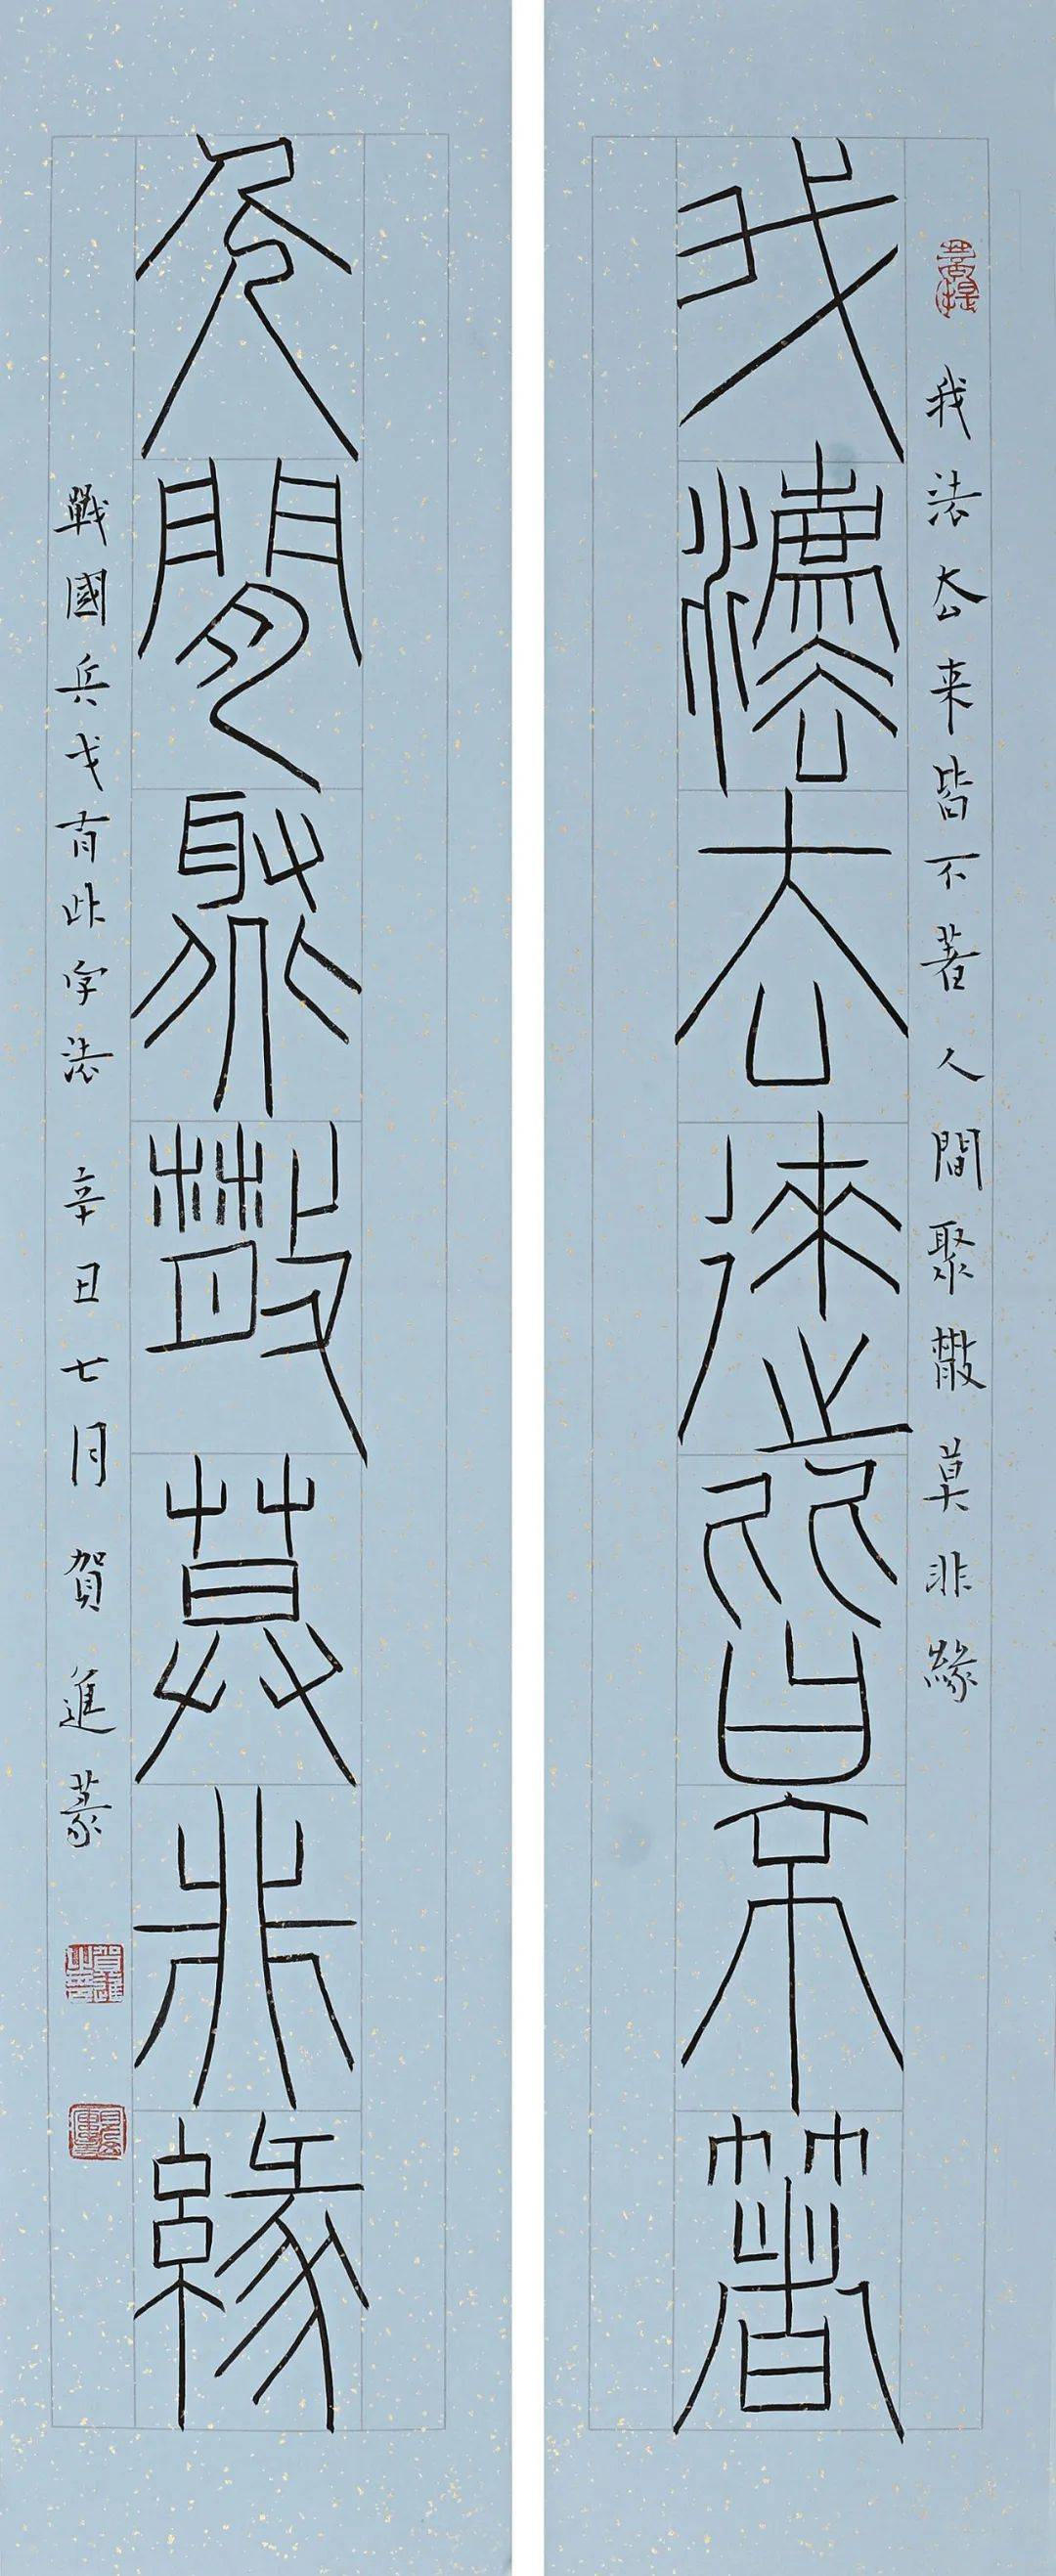 菩提
我法厺来皆不著人間聚散莫非緣
我灋去逨皆不箸
人間聚散莫非緣
戰國兵戈有此字法 辛丑七月 賀進篆